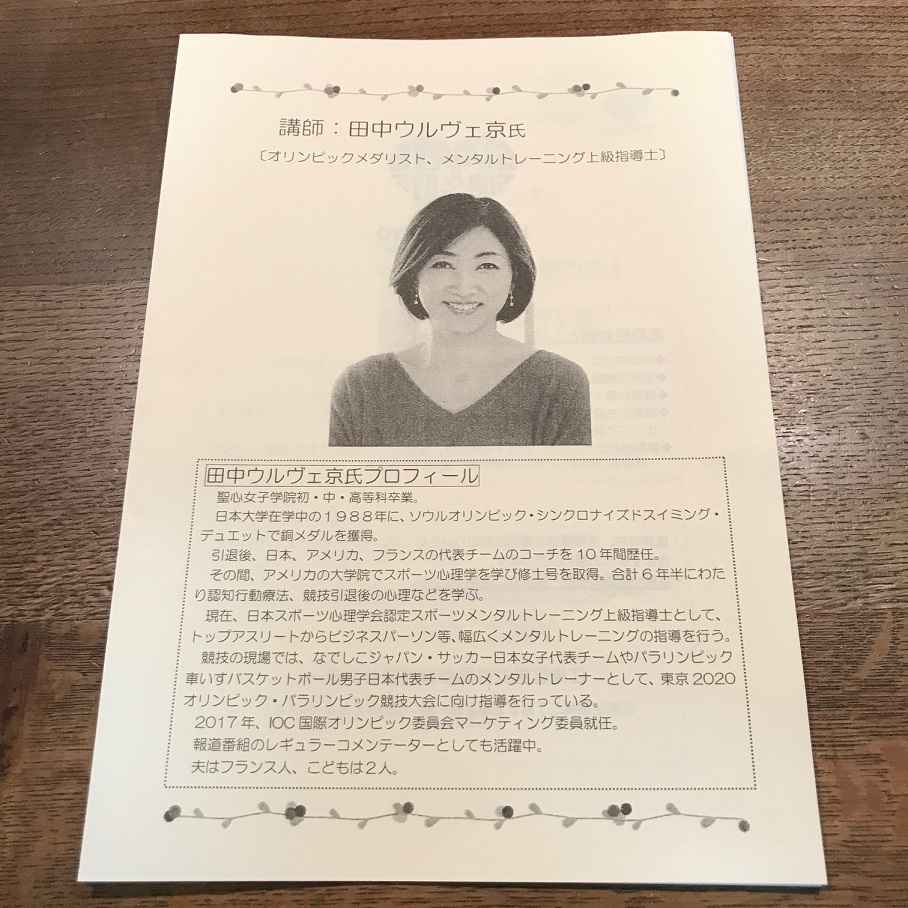 講師：田中ウルヴェ京氏
〔オリンピックメダリスト、メンタルトレーニング上級指導士〕
田中ウルヴェ京氏プロフィール
聖心女子学院初・中・高等科卒業。
日本大学在学中の１９８８年に、ソウルオリンピック・シンクロナイズドスイミング・
デュエットで銅メダルを獲得。
引退後、日本、アメリカ、フランスの代表チームのコーチを10年間歴任。
その間、アメリカの大学院でスポーツ心理学を学び修士号を取得。合計６年半にわた
り認知行動療法、競技引退後の心理などを学ぶ。
現在、日本スポーツ心理学会認定スポーツメンタルトレーニング上級指導士として、
トップアスリートからビジネスパーソン等、幅広くメンタルトレーニングの指導を行う。
競技の現場では、なでしこジャパン・サッカー日本女子代表チームやパラリンピック
車いすバスケットボール男子日本代表チームのメンタルトレーナーとして、東京2020
オリンピック・パラリンピック競技大会に向け指導を行っている。
2017年、IOC国際オリンピック委員会マーケティング委員就任。
報道番組のレギュラーコメンテーターとしても活躍中。
夫はフランス人、こどもは２人。